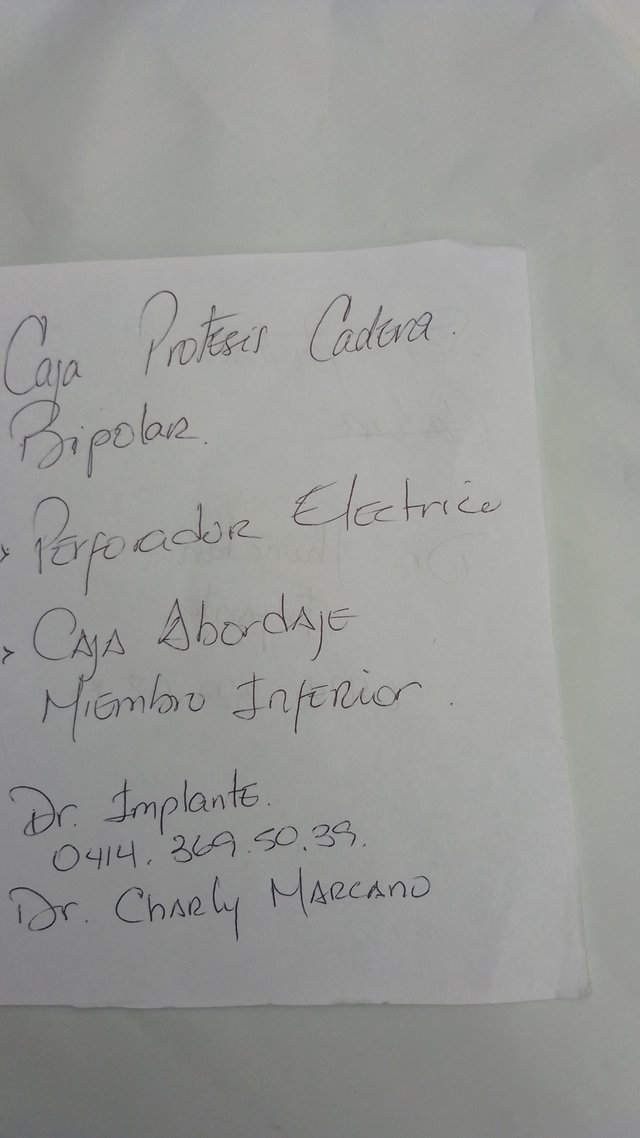 Caja Protesis Cadera.
Bipolar.
> Perforador Electrico
> Caja Abordaje
Miembro Inferior.
Dr. Implante.
0414.369.50.39.
Dr. Charly Marcano